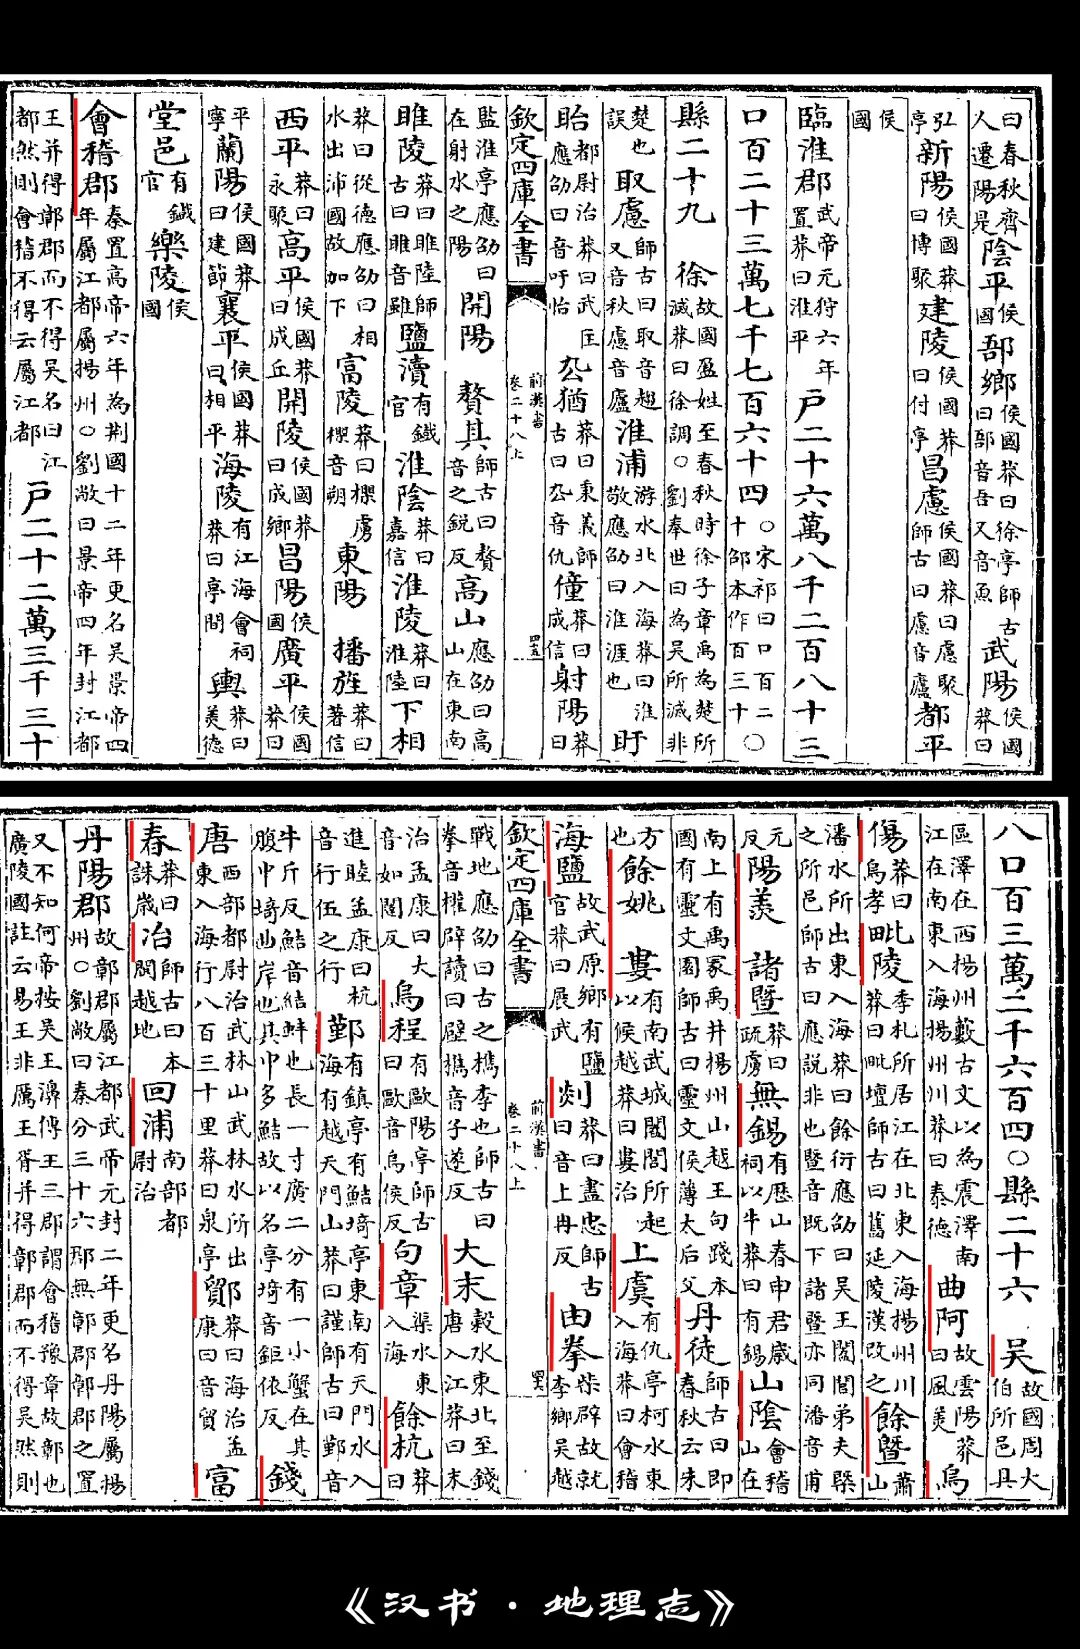 曰春秋齊人遷陽是陰平侯國郚鄉侯國莽曰徐亭師古曰郚音吾又音魚武陽侯國莽曰
弘亭新陽侯國莽曰博聚建陵侯國莽曰付亭昌慮侯國莽曰慮聚師古曰慮音廬都平
侯國
臨淮郡武帝元狩六年置莽曰淮平戶二十六萬八千二百八十三
口百二十三萬七千七百六十四○宋祁曰口百二十邵本作百三十○
縣二十九 徐故國盈姓至春秋時徐子章禹為楚所滅莽曰徐調○劉奉世曰為吳所滅非
楚也誤取慮師古曰取音趨又音秋慮音廬淮浦游水北入海莽曰淮敬應劭曰淮涯也盱
眙都尉治莽曰武匡應劭曰音吁怡厹猶莽曰秉義師古曰厹音仇僮莽曰成信射陽莽曰
欽定四庫全書 前漢書卷二十八上 罒五
監淮亭應劭曰在射水之陽開陽 贅其師古曰贅音之銳反高山應劭曰高山在東南
睢陵莽曰睢陸師古曰睢音雖鹽瀆有鐵官淮陰莽曰嘉信淮陵莽曰淮陸下相
莽曰從德應劭曰相水出沛國故加下富陵莽曰㯅虜㯅音朔東陽 播旌莽曰著信
西平莽曰永聚高平侯國莽曰成丘開陵侯國莽曰成鄉昌陽侯國廣平侯國莽曰
平寧蘭陽侯國莽曰建節襄平侯國莽曰相平海陵有江海會祠莽曰亭間輿莽曰美德
堂邑有鐵官樂陵侯國
會稽郡秦置高帝六年為荆國十二年更名吳景帝四年屬江都屬揚州○劉敞曰景帝四年封江都
王并得鄣郡而不得吳名曰江都然則會稽不得云屬江都戶二十二萬三千三十
八口百三萬二千六百四○縣二十六 吳故國周大伯所邑具
區澤在西揚州藪古文以為震澤南江在南東入海揚州川莽曰泰德曲阿故雲陽莽曰風美烏
傷莽曰烏孝毗陵季札所居江在北東入海揚州川莽曰毗壇師古曰舊延陵漢改之餘曁蕭山
潘水所出東入海莽曰餘衍應劭曰吳王闔閭弟夫槩之所邑師古曰應説非也曁音既下諸曁亦同潘音甫
元反陽羨 諸曁莽曰疏虜無錫有歷山春申君歲祠以牛莽曰有錫山陰會稽山在
南上有禹冢禹井揚州山越王句踐本國有靈文園師古曰靈文侯薄太后父丹徒師古曰即春秋云朱
方也餘姚 婁有南武城闔閭所起以候越莽曰婁治上虞有仇亭柯水東入海莽曰會稽
海鹽故武原鄉有鹽官莽曰展武剡莽曰盡忠師古曰音上冉反由拳柴辟故就李鄉吳越
欽定四庫全書 前漢書卷二十八上 罒六
戰地應劭曰古之檇李也師古曰拳音權辟讀曰壁檇音子遂反大末榖水東北至錢唐入江莽曰末
治孟康曰大音如闥反烏程有歐陽亭師古曰歐音烏侯反句章渠水東入海餘杭莽曰
進睦孟康曰杭音行伍之行鄞有鎮亭有鮚埼亭東南有天門水入海有越天門山莽曰謹師古曰鄞音
牛斤反鮚音結蚌也長一寸廣二分有一小蟹在其腹中埼曲岸也其中多鮚故以名亭埼音鉅依反錢
唐西部都尉治武林山武林水所出東入海行八百三十里莽曰泉亭鄮莽曰海治孟康曰音貿富
春莽曰誅歲冶師古曰本閩越地回浦南部都尉治
丹陽郡故鄣郡屬江都武帝元封二年更名丹陽屬揚州○劉敞曰秦分三十六郡無鄣郡鄣郡之置
又不知何帝按吳王濞傳王三郡謂會稽豫章故鄣也廣陵國註云易王非厲王胥并得鄣郡而不得吳然則
《汉书·地理志》